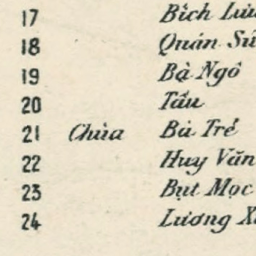 17 Bích Lưu
18 Quán Sứ
19 Bà Ngô
20 Tầu
21 Chùa Bà Trẻ
22 Huy Văn
23 Bụt Mọc
24 Lương